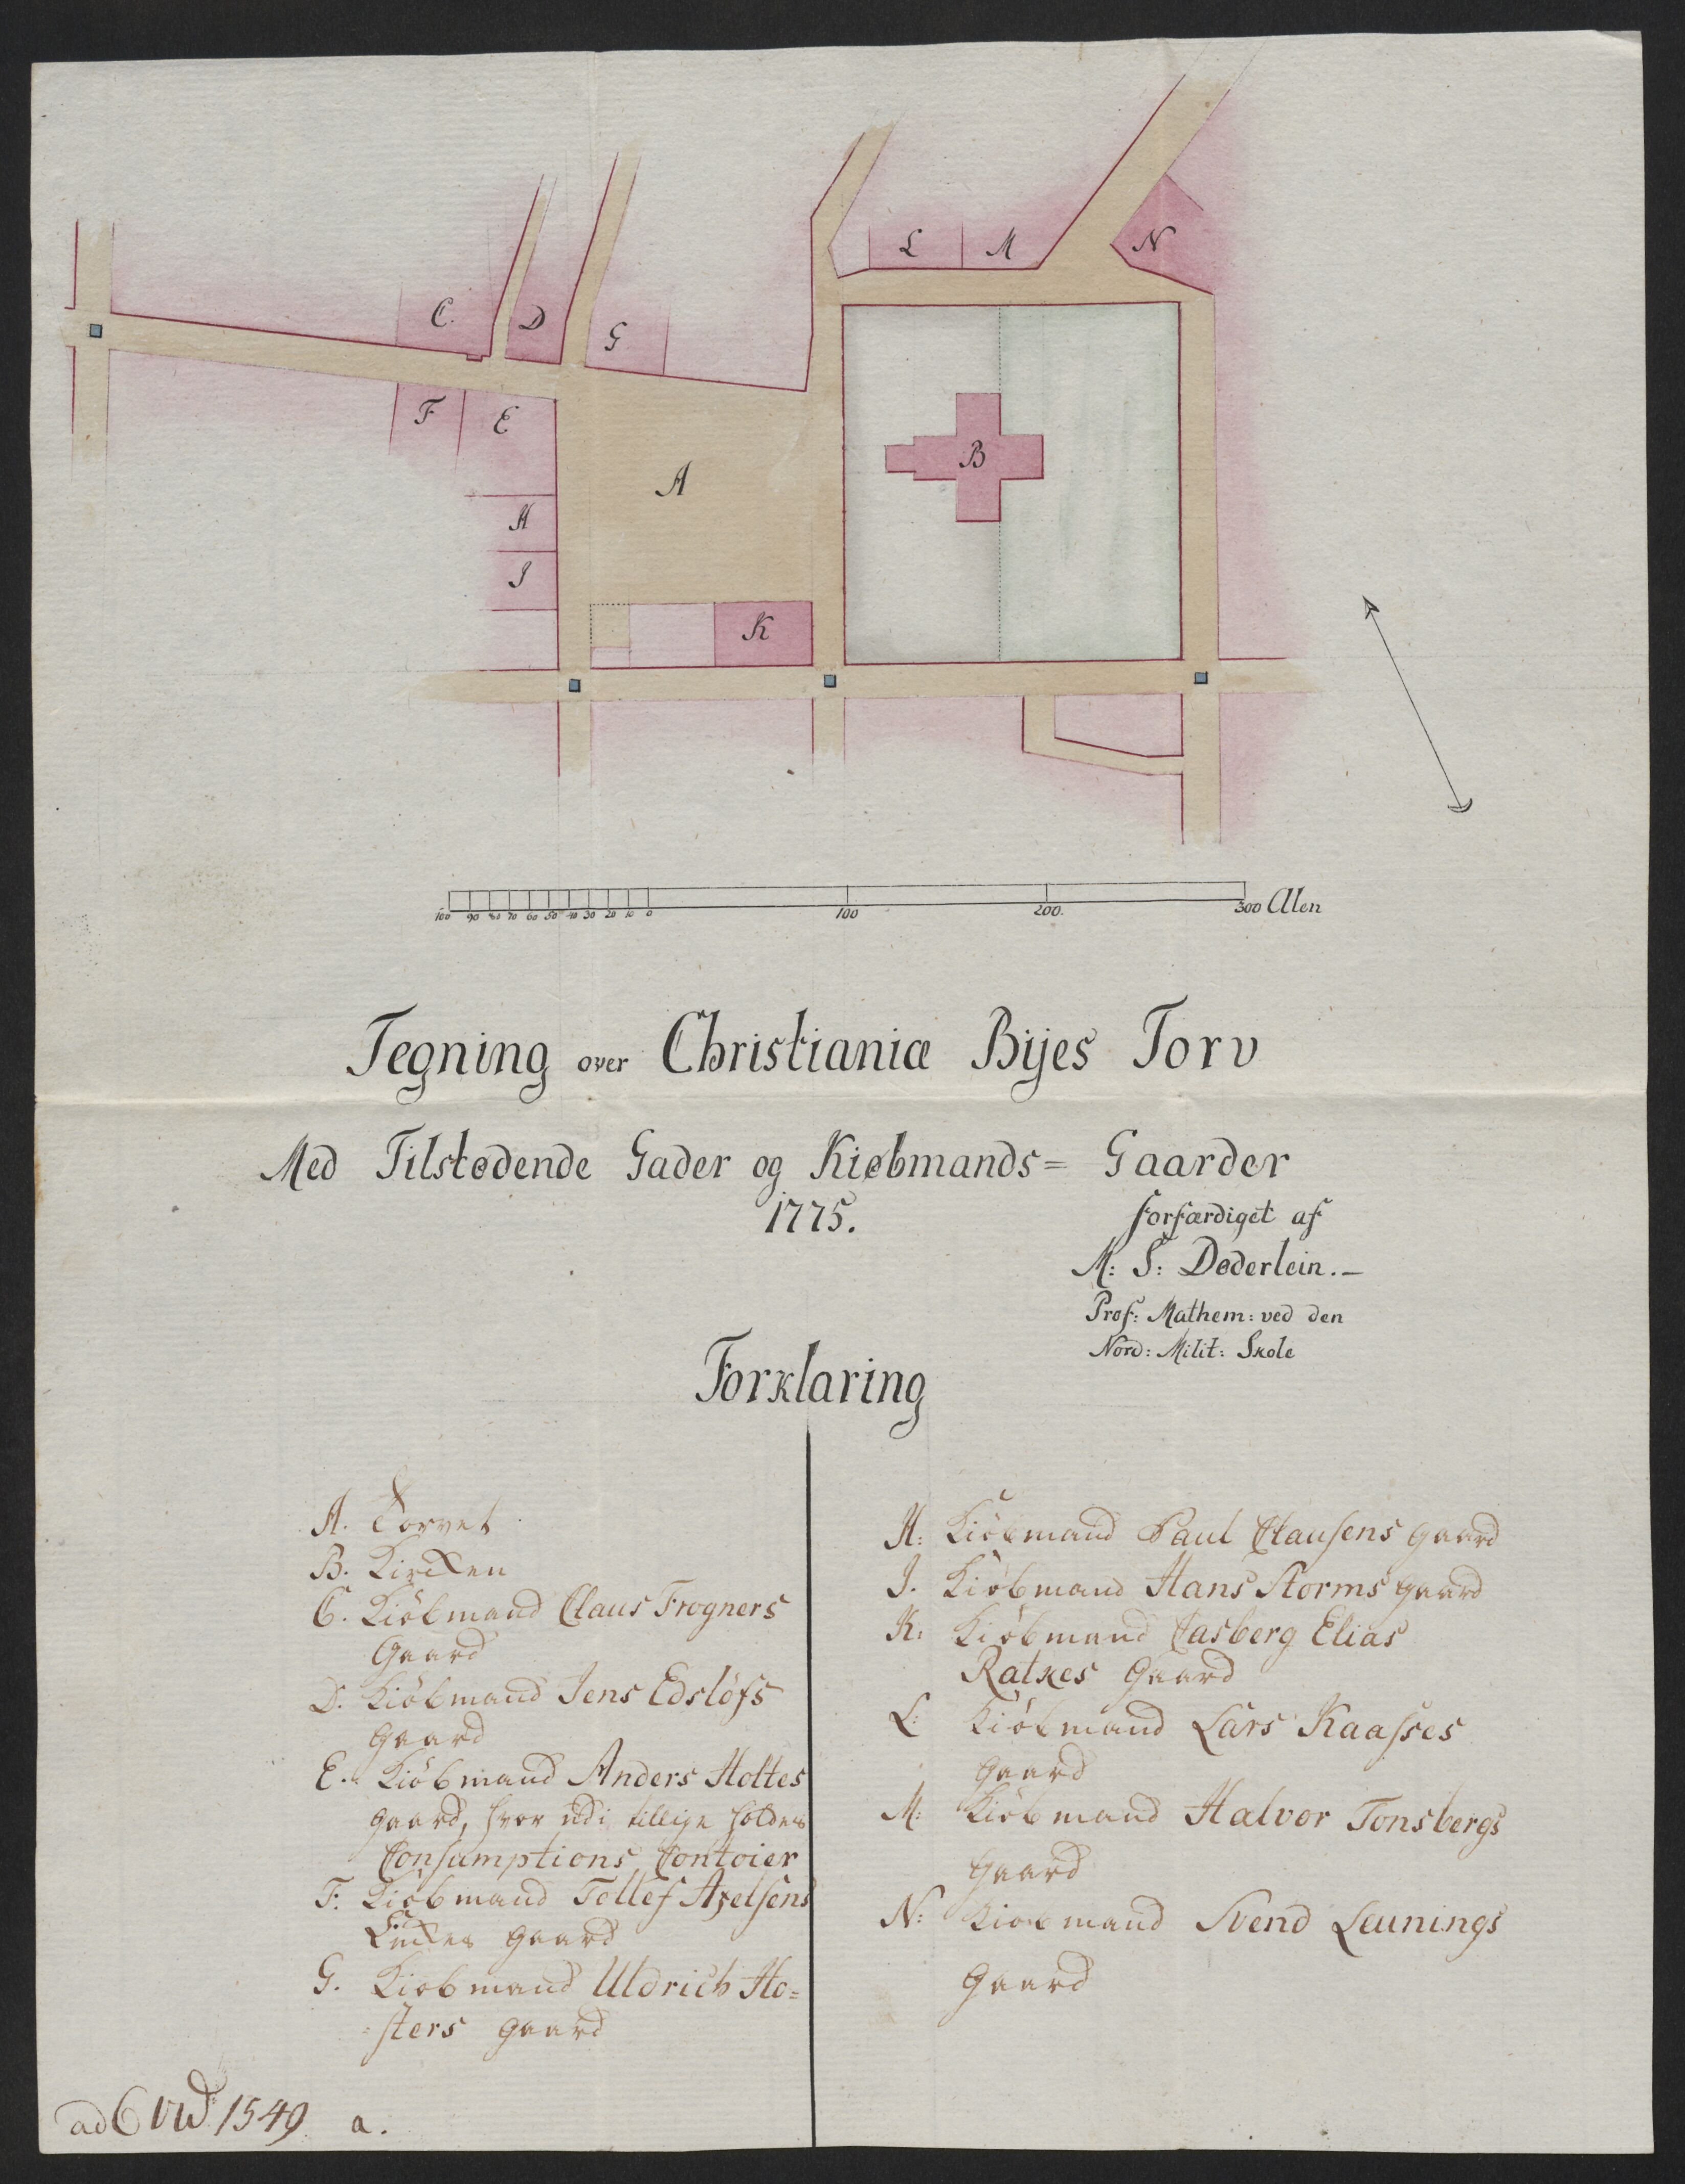 L M N
C. D G
F E
B
A
H
J
K
100 90 80 70 60 50 40 30 20 10 0 100 200. 300 Alen
Tegning over Christianiæ Bijes Torv
Med Tilstødende Gader og Kiøbmands= Gaarder
1775.
forfærdiget af
M: S: Døderlein.—
Prof: Mathem: ved den
Nord: Milit: Skole
Forklaring
A. Torvet
B. Kircken
C. Kiöbmand Claus Frogners
Gaard
D. Kiöbmand Jens Edslöfs
gaard
E. Kiöbmand Anders Holtes
gaard, hvor udi tillige holdes
Consumptions Contoier
F: Kiöbmand Tellef Axelsens
gaard
G. Kiöbmand Uldrich Ho=
=sters gaard
H: Kiöbmand Paul Clausens gaard
J. Kiöbmand Hans Storms gaard
K: Kiöbmand Casberg Elias
Ratkes Gaard
L: Kiöbmand Lars Kaasses
gaard
M: Kiöbmand Halvor Tonsbergs
gaard
N: Kiöbmand Svend Leunings
Gaard
ad 1549 a.